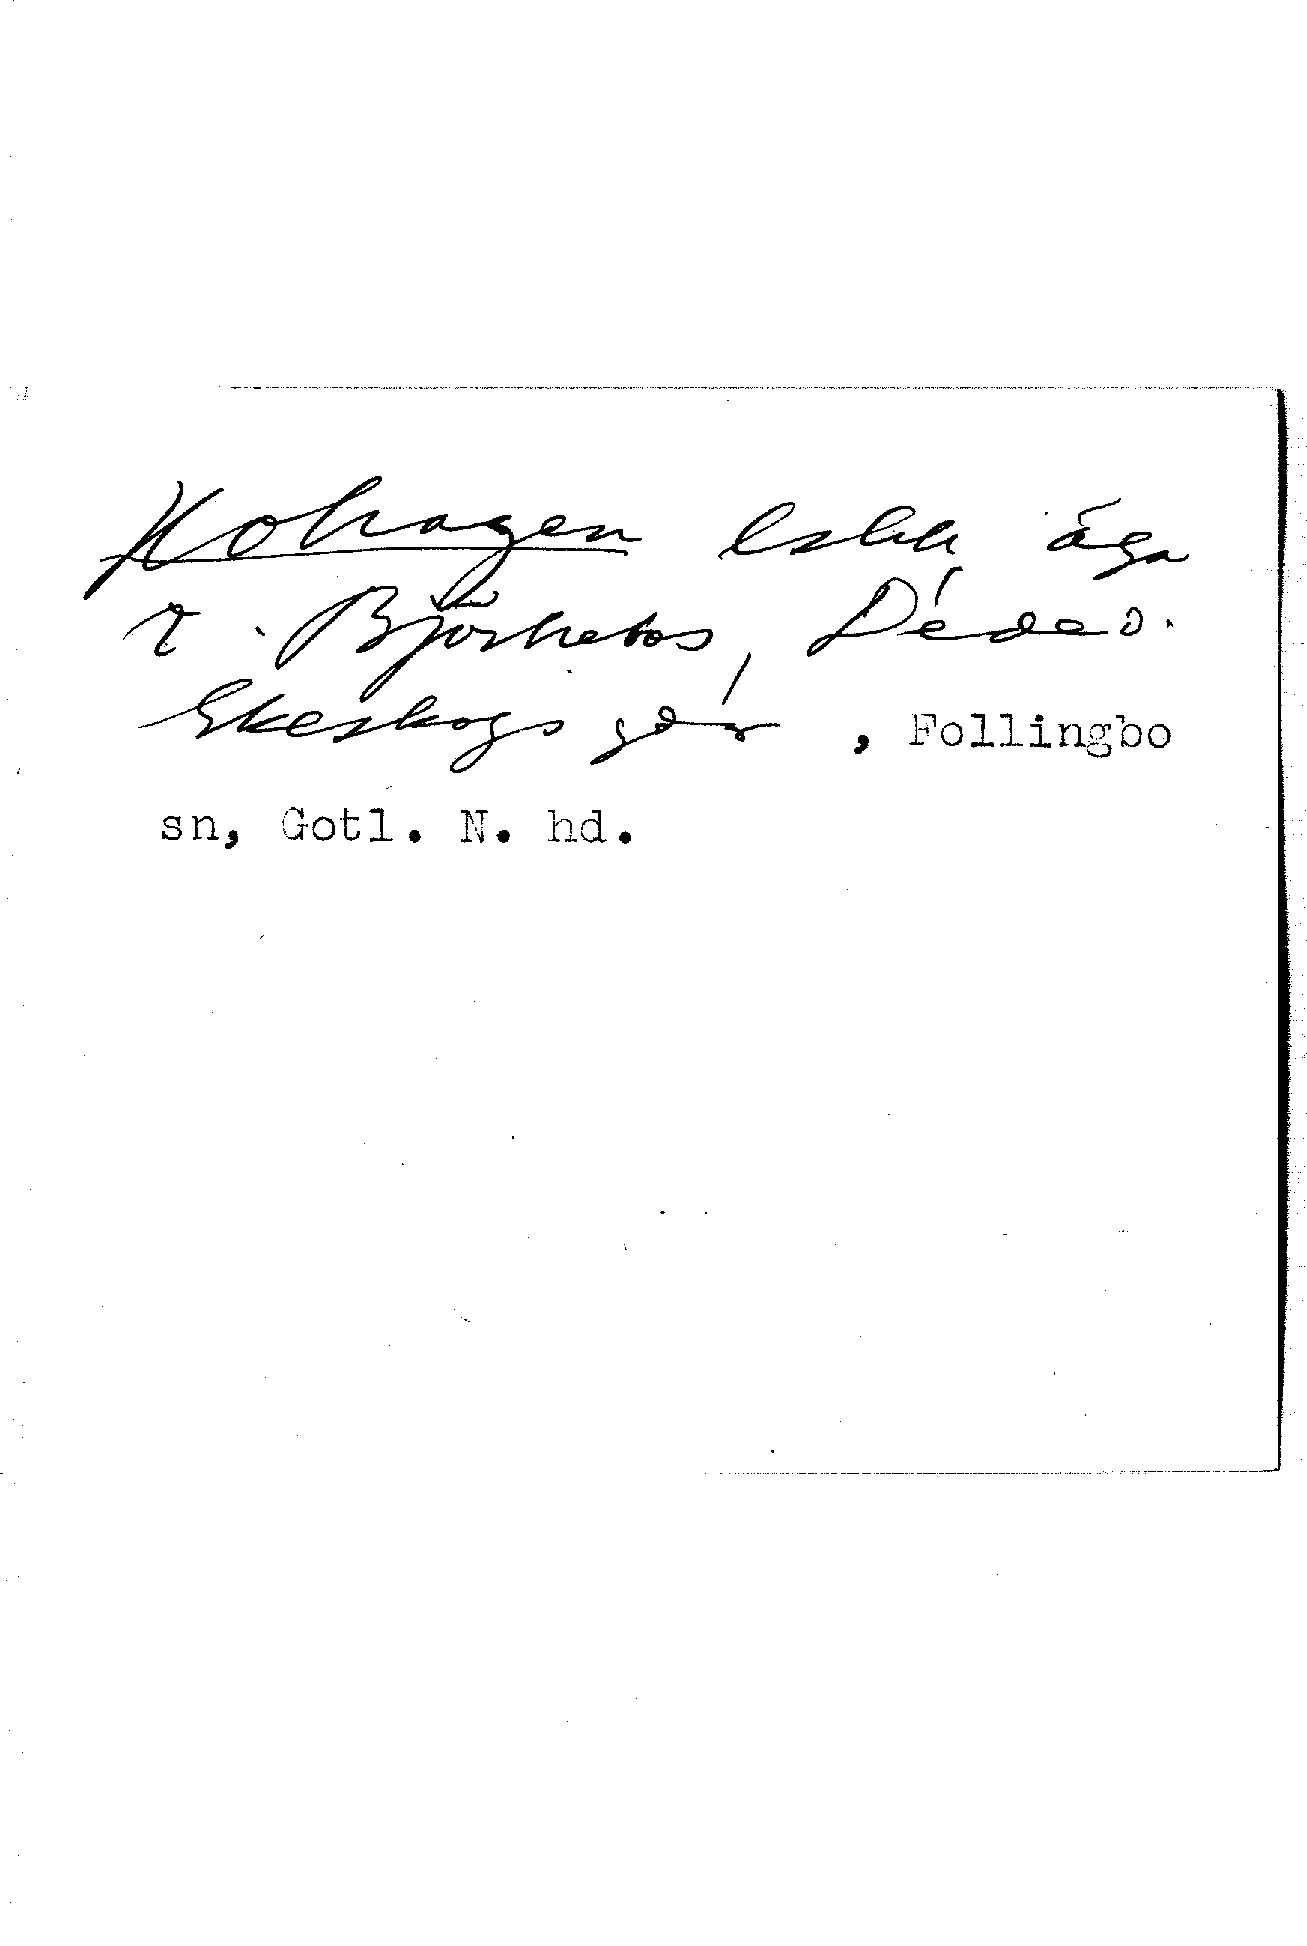 Kohagen äga
t. Björkebos, Déde o.
Ekeskogs gdr, Follingbo
sn, Gotl. N. hd.